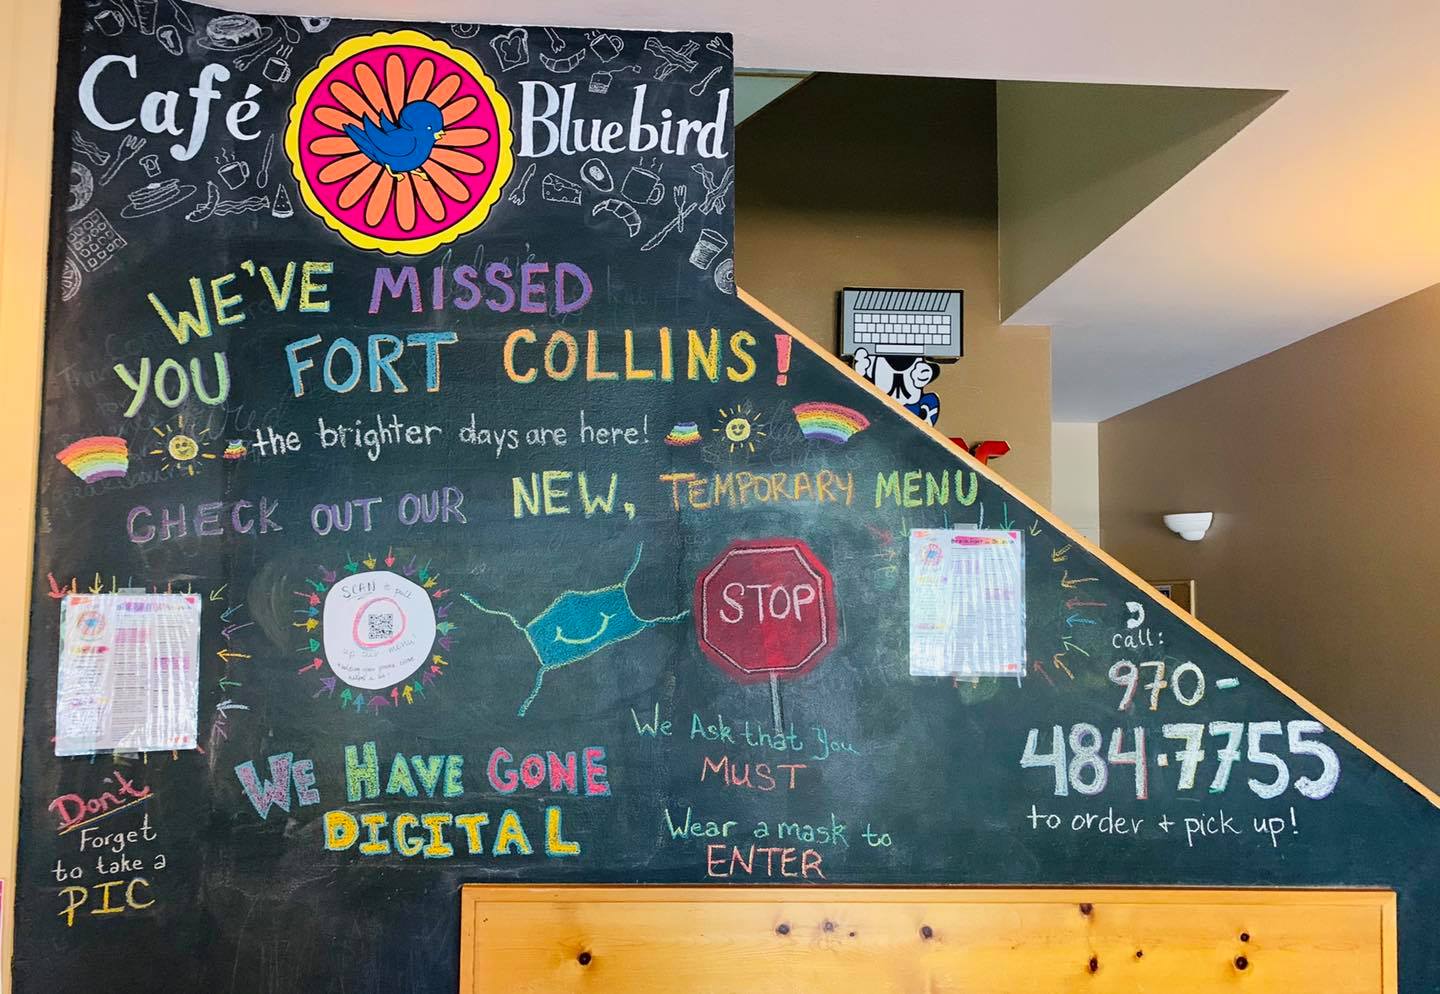 Café Bluebird
WE'VE MISSED
YOU FORT COLLINS!
the brighter days are here!
CHECK OUT OUR NEW, TEMPORARY MENU
SCAN to pull
up our menu!
STOP
call:
970-
484-7755
to order + pick up!
We Ask that You
MUST
Wear a mask to
ENTER
WE HAVE GONE
DIGITAL
Don't
Forget
to take a
PIC